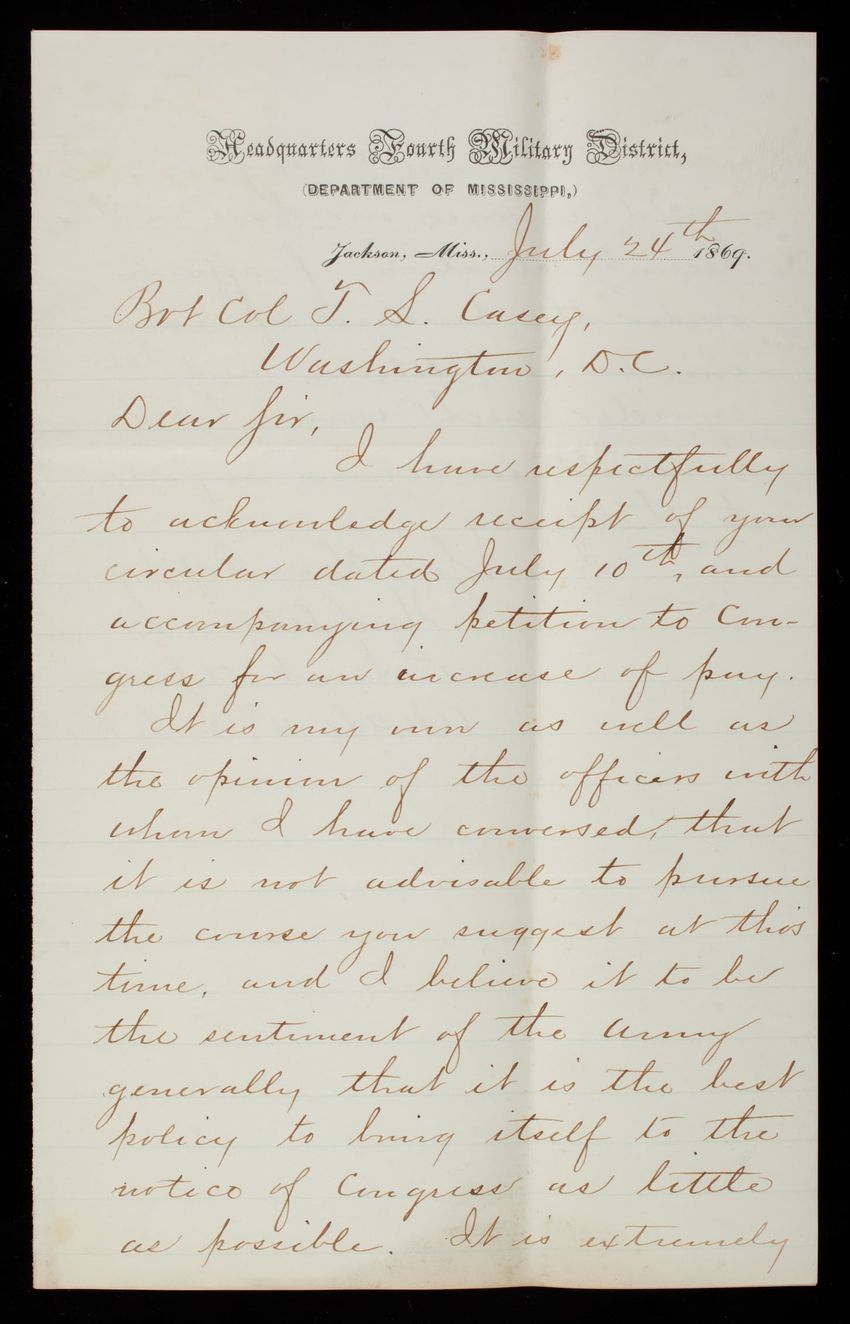 Headquarters Fourth Military District,
(DEPARTMENT OF MISSISSIPPI,)
Jackson, Miss., July 24th 1869.
Bvt Col T. S. Casey,
Washington, D.C.
Dear Sir,
I have respectfully
to acknowledge receipt of your
circular dated July 10th, and
accompanying petition to Con-
gress for an increase of pay.
It is my own as well as
the opinion of the officers with
whom I have conversed, that
it is not advisable to pursue
the course you suggest at this
time, and I believe it to be
the sentiment of the Army
generally that it is the best
policy to bring itself to the
notice of Congress as little
as possible. It is extremely